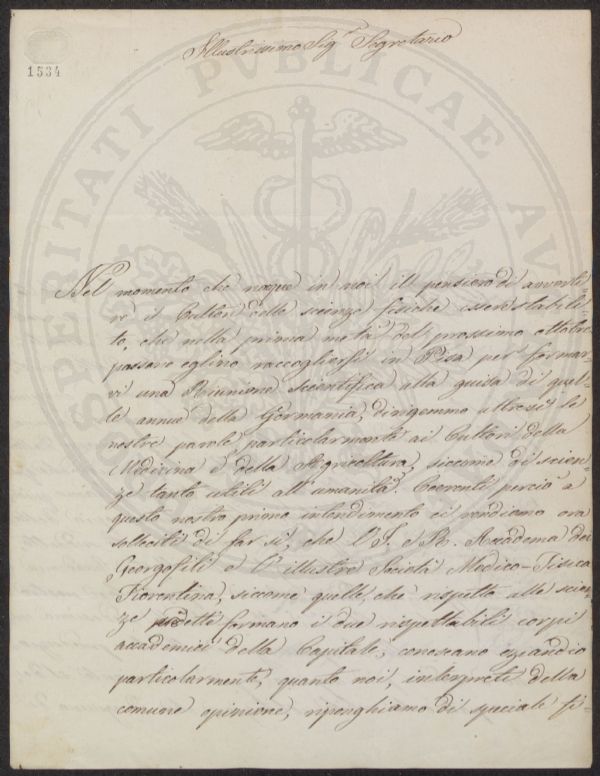 Illustrissimo Sig.r Segretario
1534
PROSPERITATI PUBLICAE AU
Nel momento che nacque in noi il pensiero di avverti
re i Cultori delle scienze fisiche essere stabili
to, che nella prima metà del prossimo ottobre
possano eglino raccogliersi in Pisa per formar
vi una Riunione Scientifica alla guisa di quel-
le annue della Germania, dirigemmo altresì le
nostre parole particolarmente ai Cultori della
Medicina e della Agricoltura, siccome di scien-
ze tanto utili all'umanità. Coerenti perciò a
questo nostro primo intendimento ci rendiamo ora
solleciti di far sì, che l'I. e R. Accademia dei
Georgofili e l'illustre Società Medico-Fisica
Fiorentina, siccome quelle che rispetto alle scien
ze formano i due rispettabili corpi
accademici della Capitale, conoscano eziandio
particolarmente, quanto noi, interpreti della
comune opinione, riponghiamo di speciale fi-